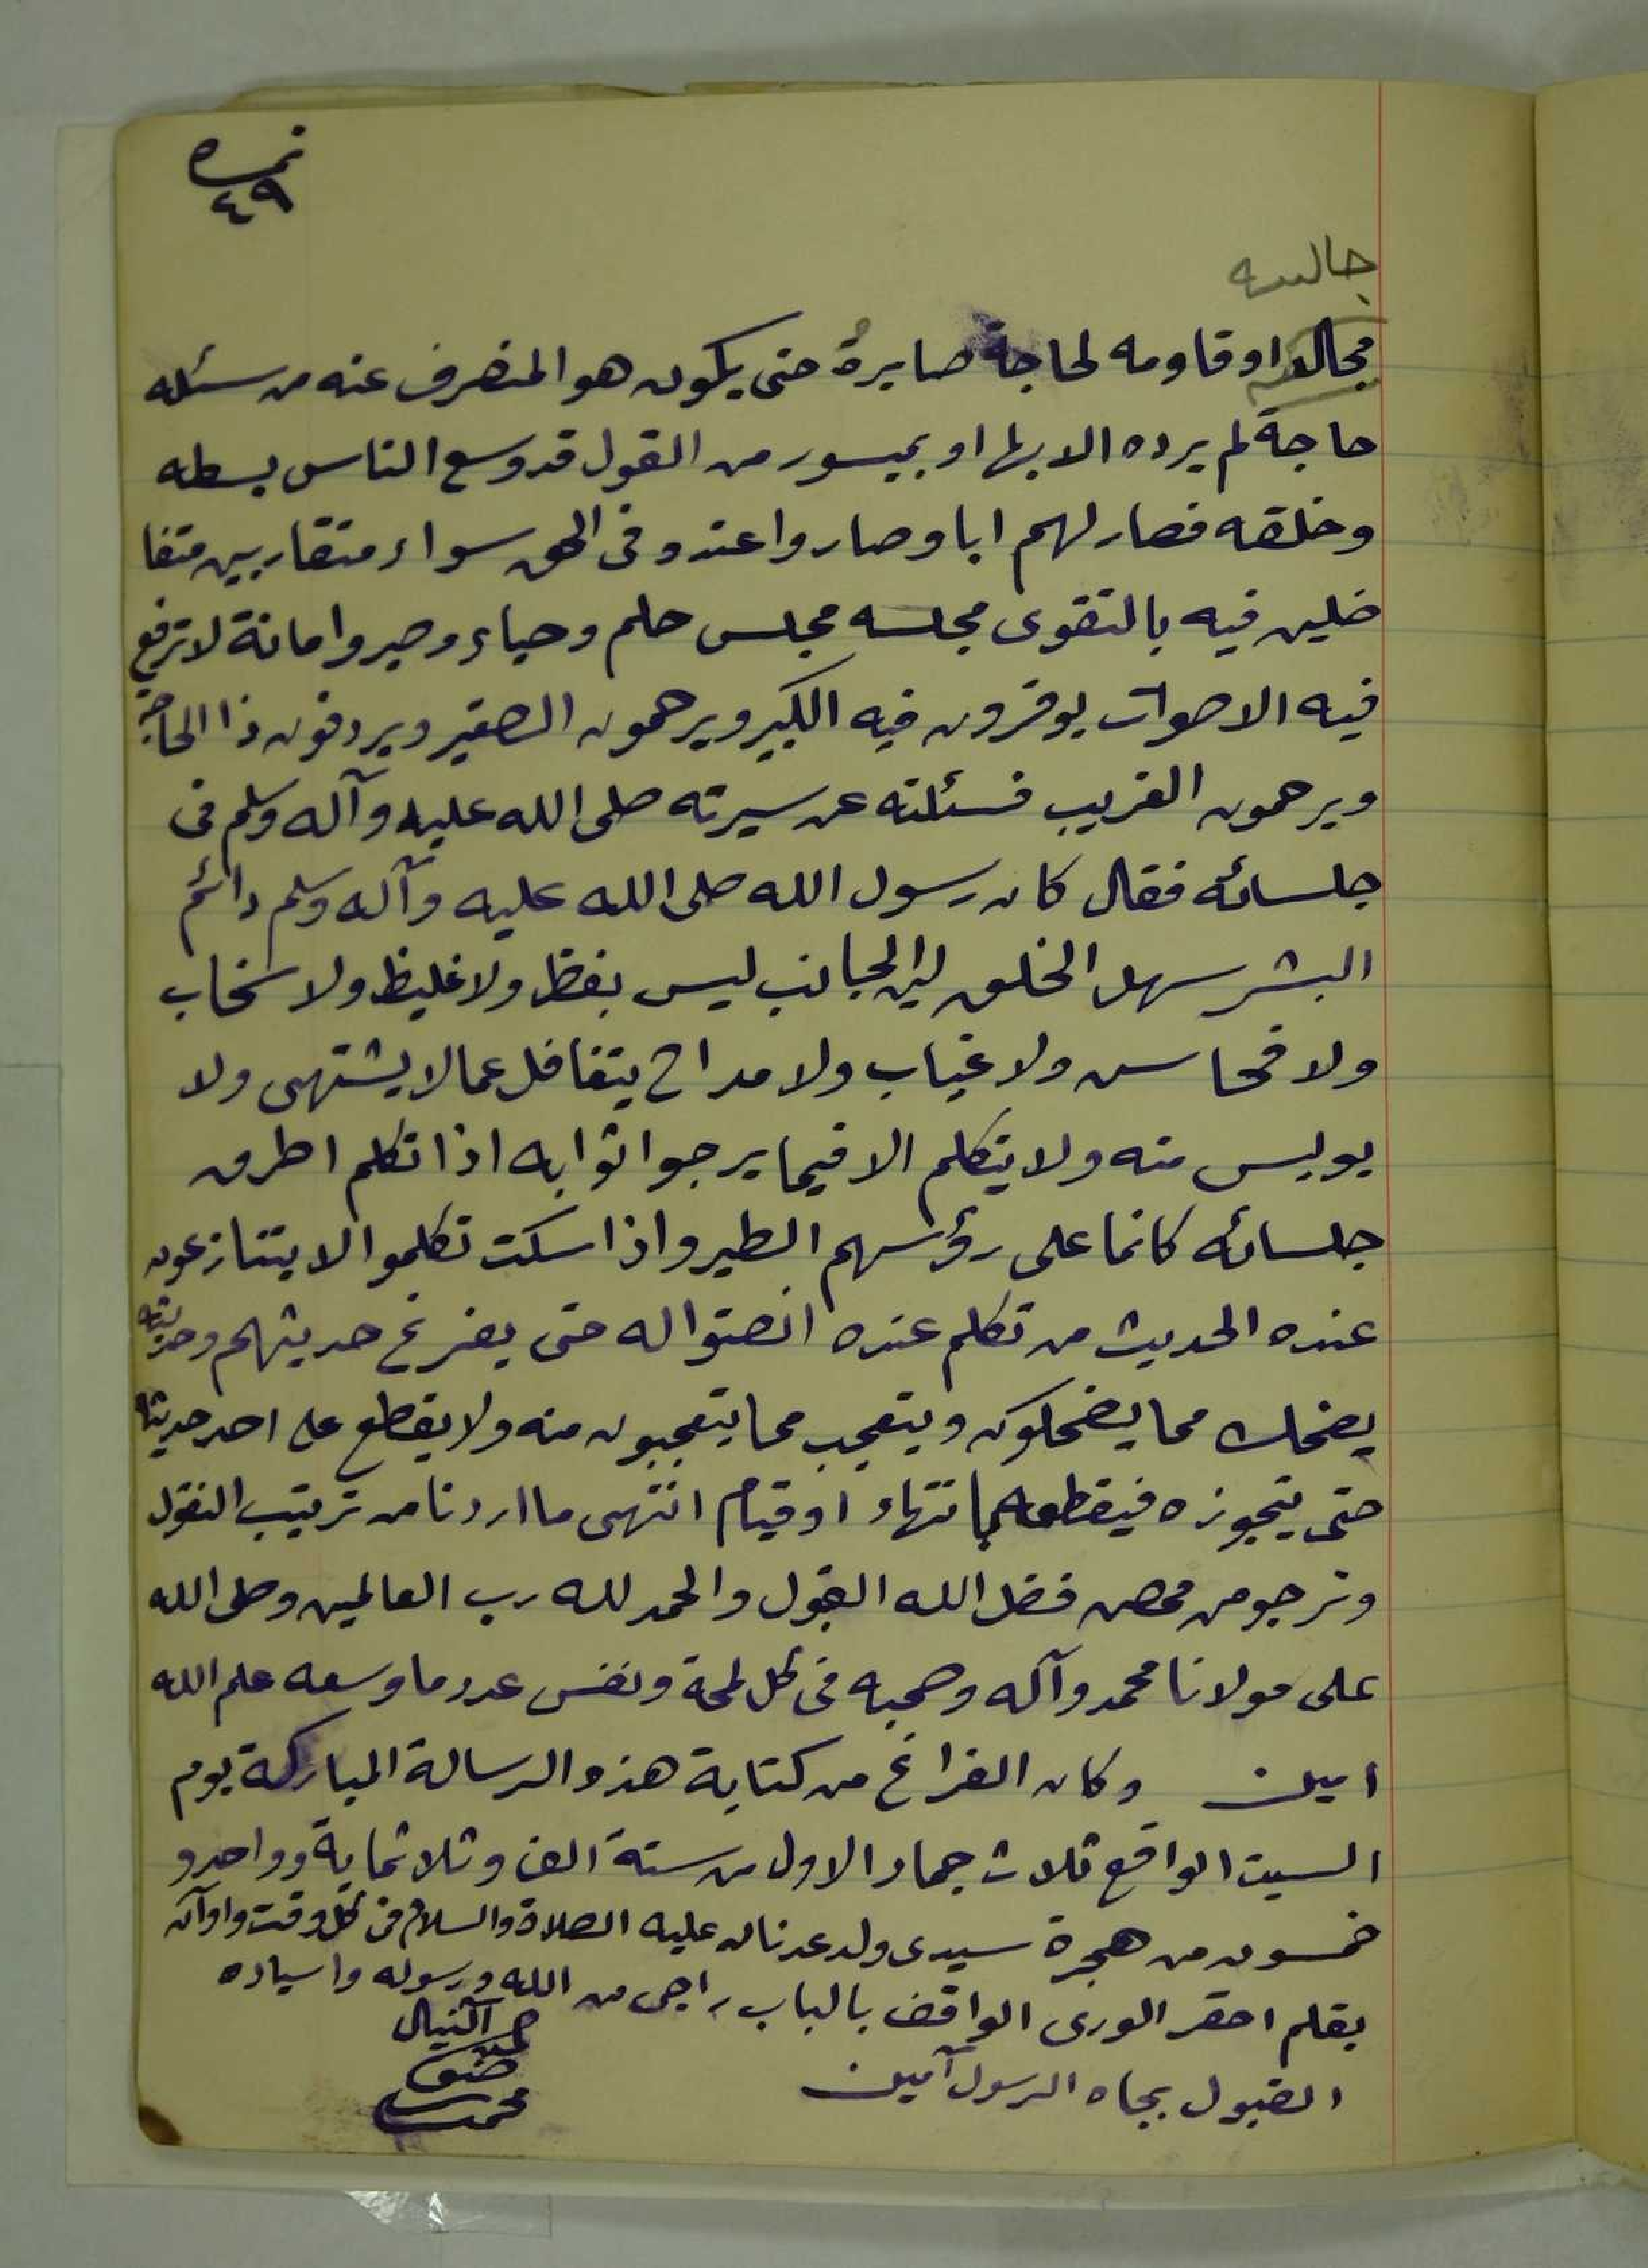 نمره
٤٩
جالسه
مجالد اوقاومه لحاجة صايرهُ حتى يكون هو المنصرف عنه من سئله
حاجة لم يرده الا بها او بميسور من القول قد وسع الناس بسطه
وخلقه فصار لهم ابا وصاروا عنده فى الحق سواء متقاربين متفا
ضلين فيه بالتقوى مجلسه مجلس حلم وحياء وصبر وامانة لا ترفع
فيه الاصوات يوقرون فيه الكبير ويرحمون الصغير ويردفون ذا الحاجة
ويرحمون الغريب فسئلته عن سيرته صلى الله عليه وآله وسلم فى
جلسائه فقال كان رسول الله صلى الله عليه وآله وسلم دائم
البشر سهل الخلق لين الجانب ليس بفظ ولا غليظ ولا سخاب
ولا فحاس ولا غياب ولا مداح يتغافل عما لا يشتهى ولا
يوليس منه ولا يتكلم الا فيما يرجوا ثوابه اذا تكلم اطرق
جلسائه كانما على رؤسهم الطير واذا سكت تكلموا لا يتنازعون
عنده الحديث من تكلم عنده انصتوا له حتى يفرغ حديثهم وحديثه
يضحك مما يضحكون ويتعجب مما يتعجبون منه ولا يقطع على احد حديثه
حتى يتجوزه فيقطعه بانتهاء او قيام انتهى ما اردنا من ترتيب النقول
ونرجو من محض فضل الله القبول والحمد لله رب العالمين وصلى الله
على مولانا محمد وآله وصحبه فى كل لمحة ونفس عدد ما وسعه علم الله
امين وكان الفراغ من كتابة هذه الرسالة المباركة يوم
السبت الواقع ثلاث جماد الاول من سنة الف وثلاثماية وواحد و
خمسون من هجرة سيدى ولد عدنان عليه الصلاة والسلام فى كل وقت واوآن
بقلم احقر الورى الواقف بالباب راجى من الله ورسوله واسياده
القبول بجاه الرسول آمين
محمد